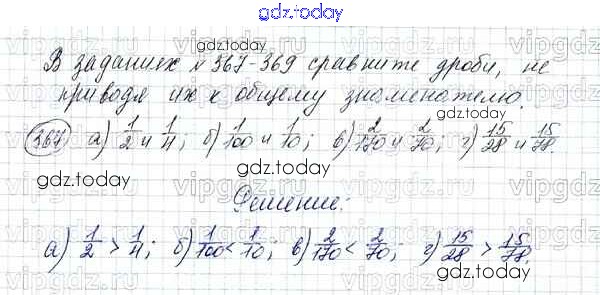 gdz.today
gdz.today
В заданиях № 367-369 сравните дроби, не
приводя их к общему знаменателю.
gdz.today
367. а) 1/2 и 1/4; б) 1/100 и 1/10; в) 2/170 и 2/70; г) 15/28 и 15/78.
gdz.today
gdz.today
Решение:
а) 1/2 > 1/4; б) 1/100 < 1/10; в) 2/170 < 2/70; г) 15/28 > 15/78.
gdz.today
gdz.today